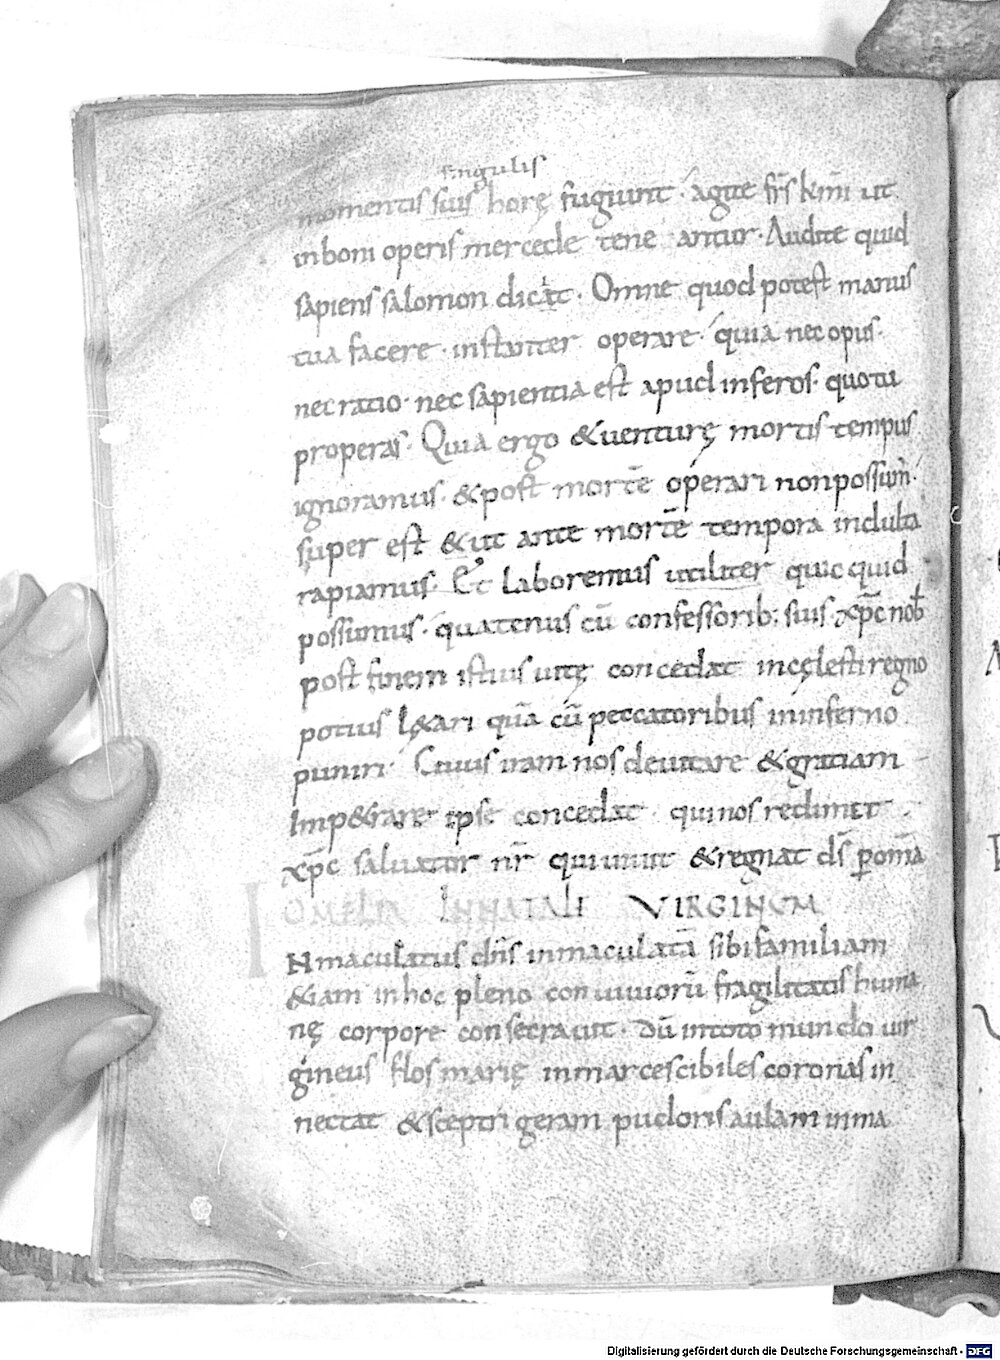 singulis
momentis suis horę fugiunt · agite frs̄ km̄i ut
in boni operis mercede tene antur · Audite quid
sapiens salomon dicat · Omne quod potest manus
tua facere · instanter operare · quia nec opus
nec ratio · nec sapientia est apud inferos · quo tu
properas · Quia ergo & uenturę mortis tempus
ignoramus · & post mortē operari non possum̄ ·
super est & ut ante mortē tempora indulta
rapiamus · Et laboremus utiliter quic quid
possumus · quatenus cū confessorib: suis xp̄c nob̄
post finem istius uitę concedat in cęlesti regno
potius l&ari quā cū peccatoribus in inferno
puniri · Cuius iram nos deuitare & gratiam
Imp&rare ipse concedat qui nos redimit
xp̄c saluator nr̄ qui uiuit & regnat ds̄ p om̄a
OMELIA IN NATALI VIRGINUM
INmaculatus dn̄s inmaculatā sibi familiam
&iam in hoc pleno conuiuiorū fragilitatis huma
nę corpore consecrauit · Dū in toto mundo uir
gineus flos marię inmarcescibiles coronas in
nectat & sceptri geram pudoris aulam inma
Digitalisierung gefördert durch die Deutsche Forschungsgemeinschaft - DFG